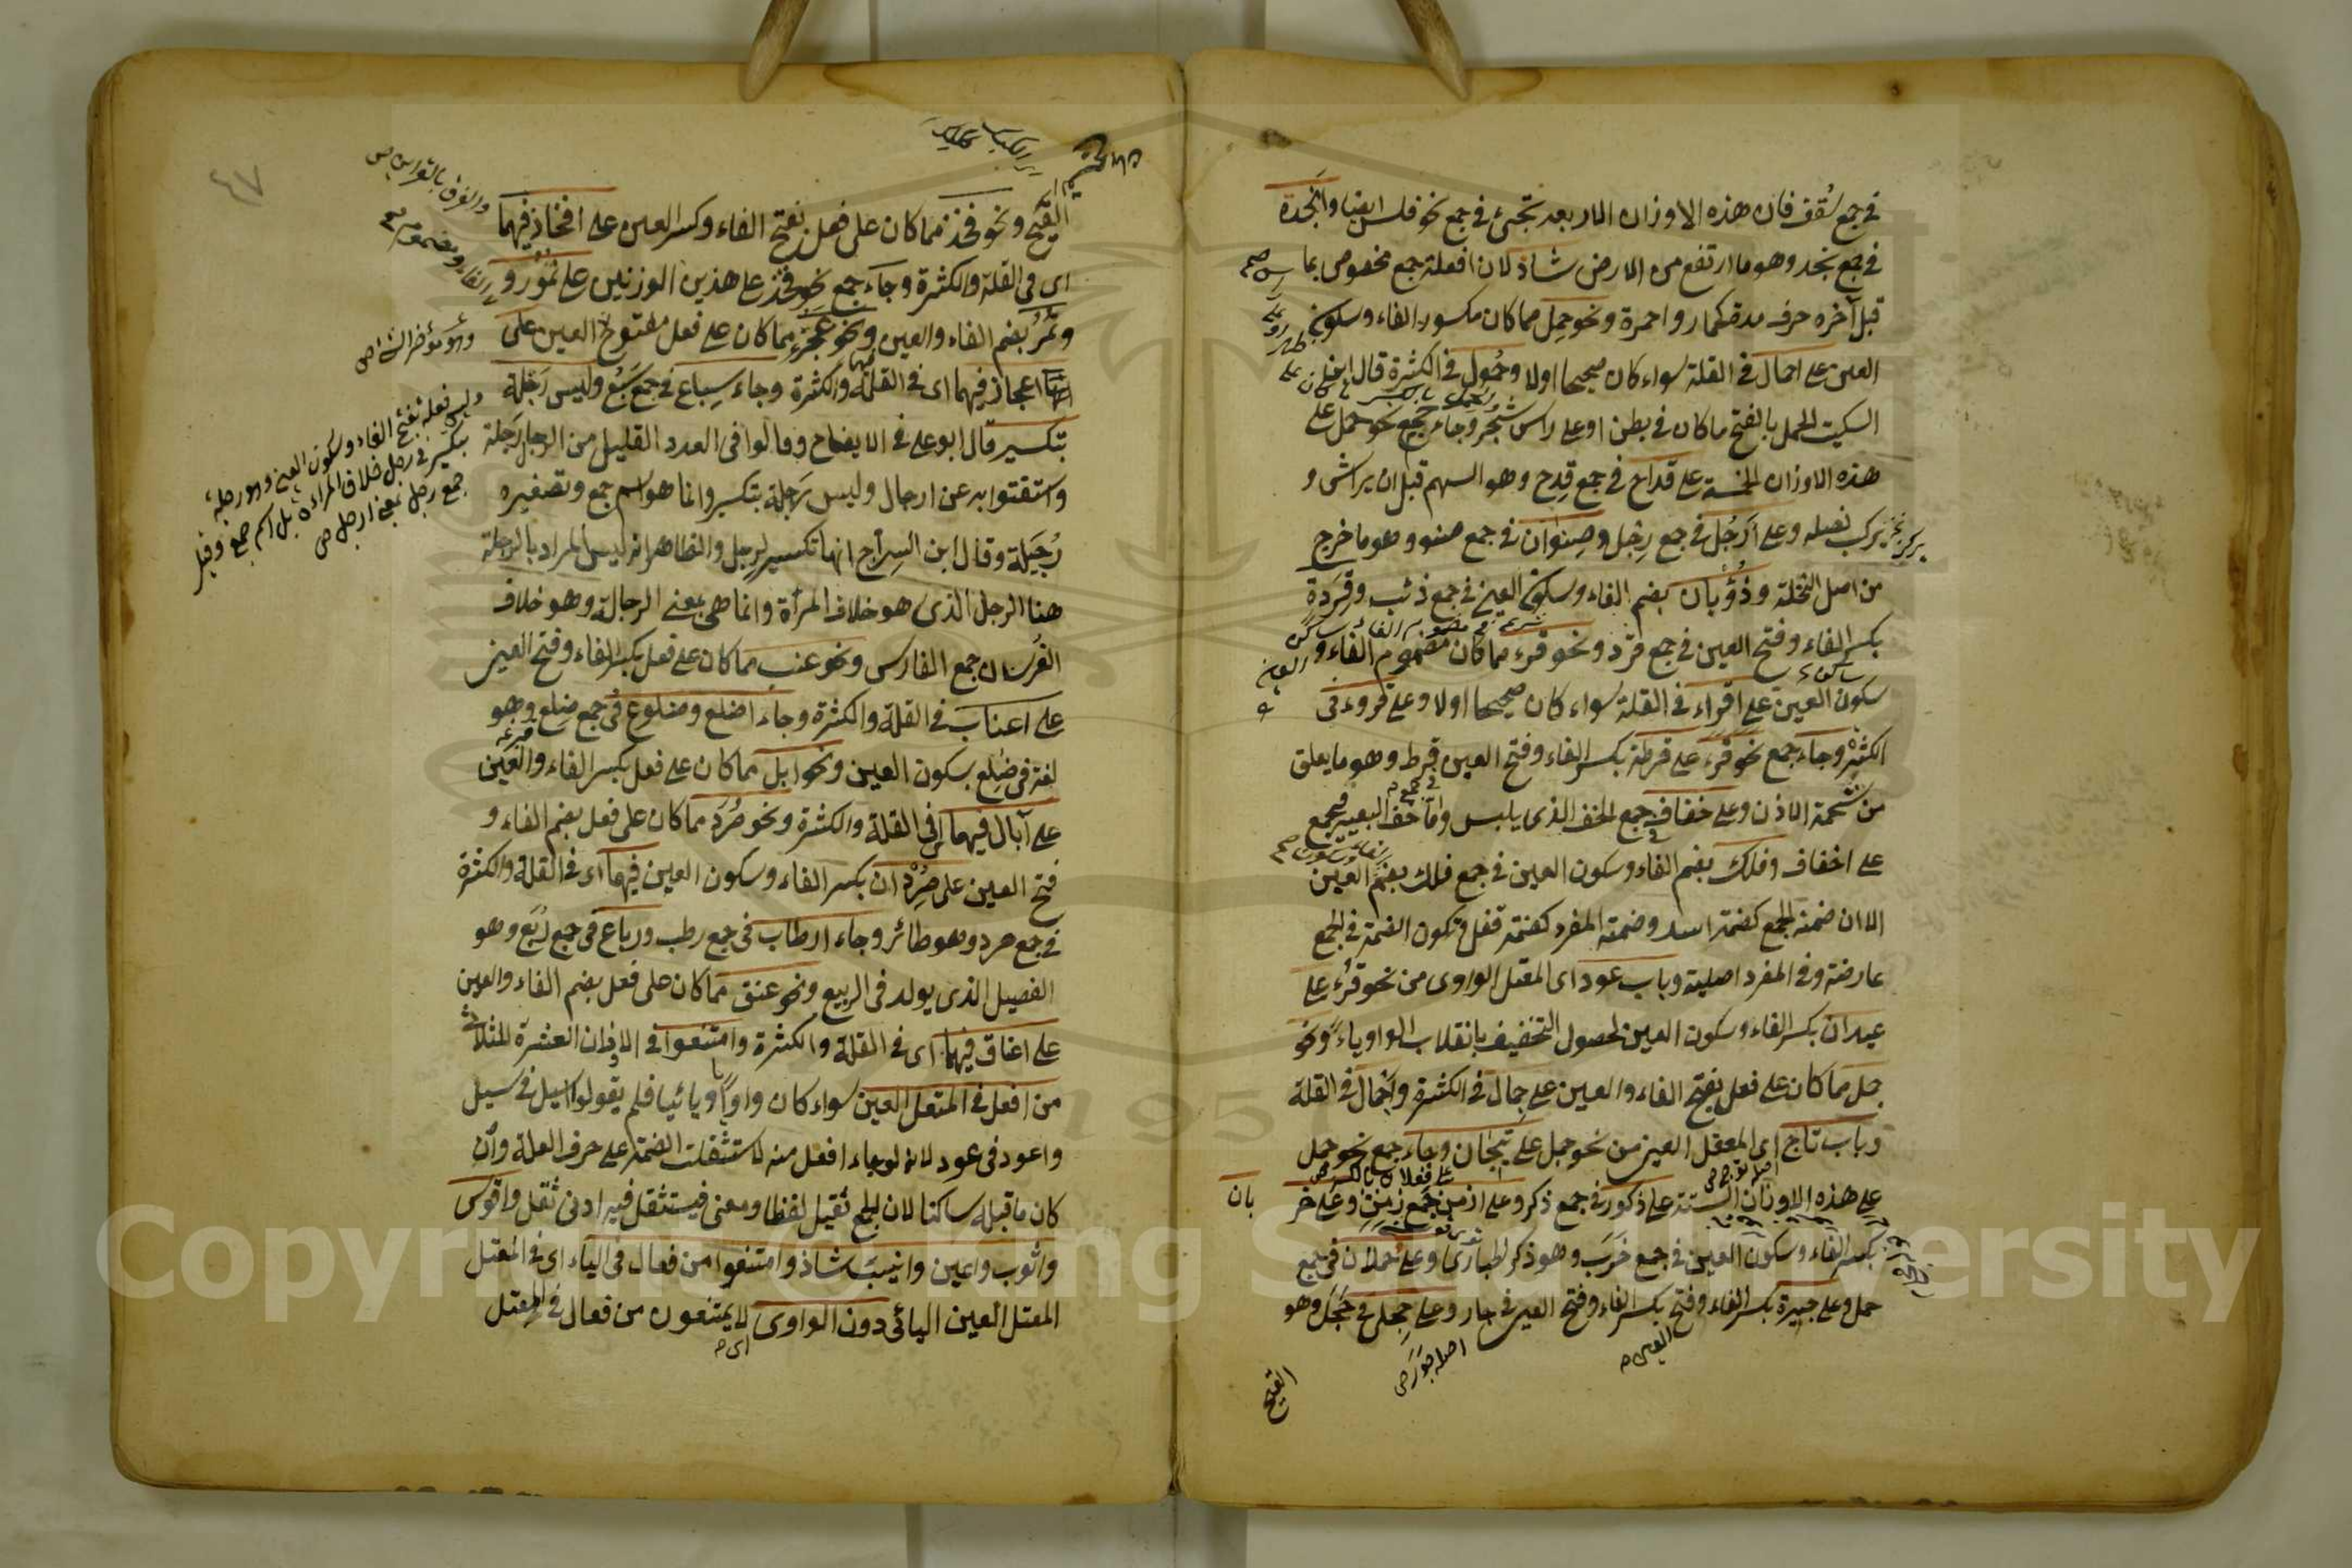 في جمع سُقف فان هذه الاوزان الاربعة تجئ في جمع نحو فلس ايضا وانجدة
في جمع نجد وهو ما ارتفع من الارض شاذ لان افعلة جمع مخصوص بما
قبل آخره حرف مدة كحمار واحمرة ونحو حمل مما كان مكسور الفاء وسكون
العين على احمال في القلة سواء كان صحيحا اولا وحُمُول في الكثرة قال ابن
السكيت الحمل بالفتح ما كان في بطن او على راس شجر وجاء جمع نحو حمل على
هذه الاوزان الخمسة على قداح في جمع قِدح وهو السهم قبل ان يراش و
يركب نصله وعلى ارجُل في جمع رِجل وصِنوان في جمع صنو وهو ما خرج
من اصل النخلة وذُؤبان بضم الفاء وسكون العين في جمع ذئب وقِرَدة
بكسر الفاء وفتح العين في جمع قرد ونحو قرء مما كان مضموم الفاء و
سكون العين على اقراء في القلة سواء كان صحيحا اولا وعلى قروء في
الكثرة وجاء جمع نحو قرء على قرطة بكسر الفاء وفتح العين قرط وهو ما يعلق
من شحمة الاذن وعلى خفاف جمع الخف الذى يلبس واما خف البعير فجمع
على اخفاف وفلك بضم الفاء وسكون العين في جمع فلك بضم العين
الا ان ضمة الجمع كضمة اسد وضمة المفرد كضمة قفل وتكون الضمة في الجمع
عارضة وفي المفرد اصلية وباب عود اى المعتل الواوى من نحو قرء على
عيدان بكسر الفاء وسكون العين لحصول التخفيف بانقلاب الواو ياء ونحو
جمل مما كان على فعل بفتح الفاء والعين على جمال في الكثرة واجمال في القلة
وباب تاج اى المعتل العين من نحو جمل على تيجان وجاء جمع نحو جمل
على هذه الاوزان الستة على ذكور في جمع ذكر وعلى ازمن جمع زمن وعلى خر
بان
بكسر الفاء وسكون العين في جمع خَرَب وهو ذكر الحبارى وعلى حملان في جمع
حمل وعلى جيرة بكسر الفاء وفتح العين في جار وعلى حجلى في حَجَل وهو
اصله جَوَر ص
العين م
القبج
٤٧
القبج ونحو فخذ مما كان على فعل بفتح الفاء وكسر العين على افخاذ فيهما
اى في القلة والكثرة وجاء جمع نحو فخذ على هذين الوزنين على نُمُور و
ونُمُر بضم الفاء والعين ونحو عَجُز مما كان على فعل مفتوح العين على
اعجاز فيهما اى في القلة والكثرة وجاء سِباع في جمع سَبُع وليس رَجْلة
بتكسير قال ابو على في الايضاح وقالوا في العدد القليل من الرجال رَجْلة
واستغنوا به عن ارجال وليس رَجلة بتكسير وانما هو اسم جمع وتصغيره
رُجَيلة وقال ابن السراج انها تكسير لرجل والظاهر انه ليس المراد بالرجلة
هنا الرجل الذى هو خلاف المرأة وانما هى بمعنى الرجالة وهو خلاف
الفرسان جمع الفارس ونحو عنب مما كان على فعل بكسر الفاء وفتح العين
على اعناب في القلة والكثرة وجاء اضلع وضلوع في جمع ضلع وهو
لغة في ضِلع بسكون العين ونحو ابل مما كان على فعل بكسر الفاء والعين
على آبال فيهما اى في القلة والكثرة ونحو صُرَد مما كان على فعل بضم الفاء و
فتح العين على صِردان بكسر الفاء وسكون العين فيهما اى في القلة والكثرة
في جمع صرد وهو طائر وجاء ارطاب في جمع رطب ورباع في جمع رُبَع وهو
الفصيل الذى يولد في الربيع ونحو عنق مما كان على فعل بضم الفاء والعين
على اعناق فيهما اى في القلة والكثرة وامتنعوا في الاوزان العشرة الثلاثى
من افعل في المعتل العين سواء كان واويا او يائيا فلم يقولوا اسيل في سيل
واعود في عود لانه لو جاء افعل منه لاستثقلت الضمة على حرف العلة وان
كان ما قبله ساكنا لان الجمع ثقيل لفظا ومعنى فيستثقل فيه ادنى ثقل واقوس
واثوب واعين وانيب شاذ وامتنعوا من فعال في الياء اى في المعتل
المعتل العين اليائى دون الواوى لا يمتنعون من فعال في المعتل
اى م
Copyright © King Saud University
1957